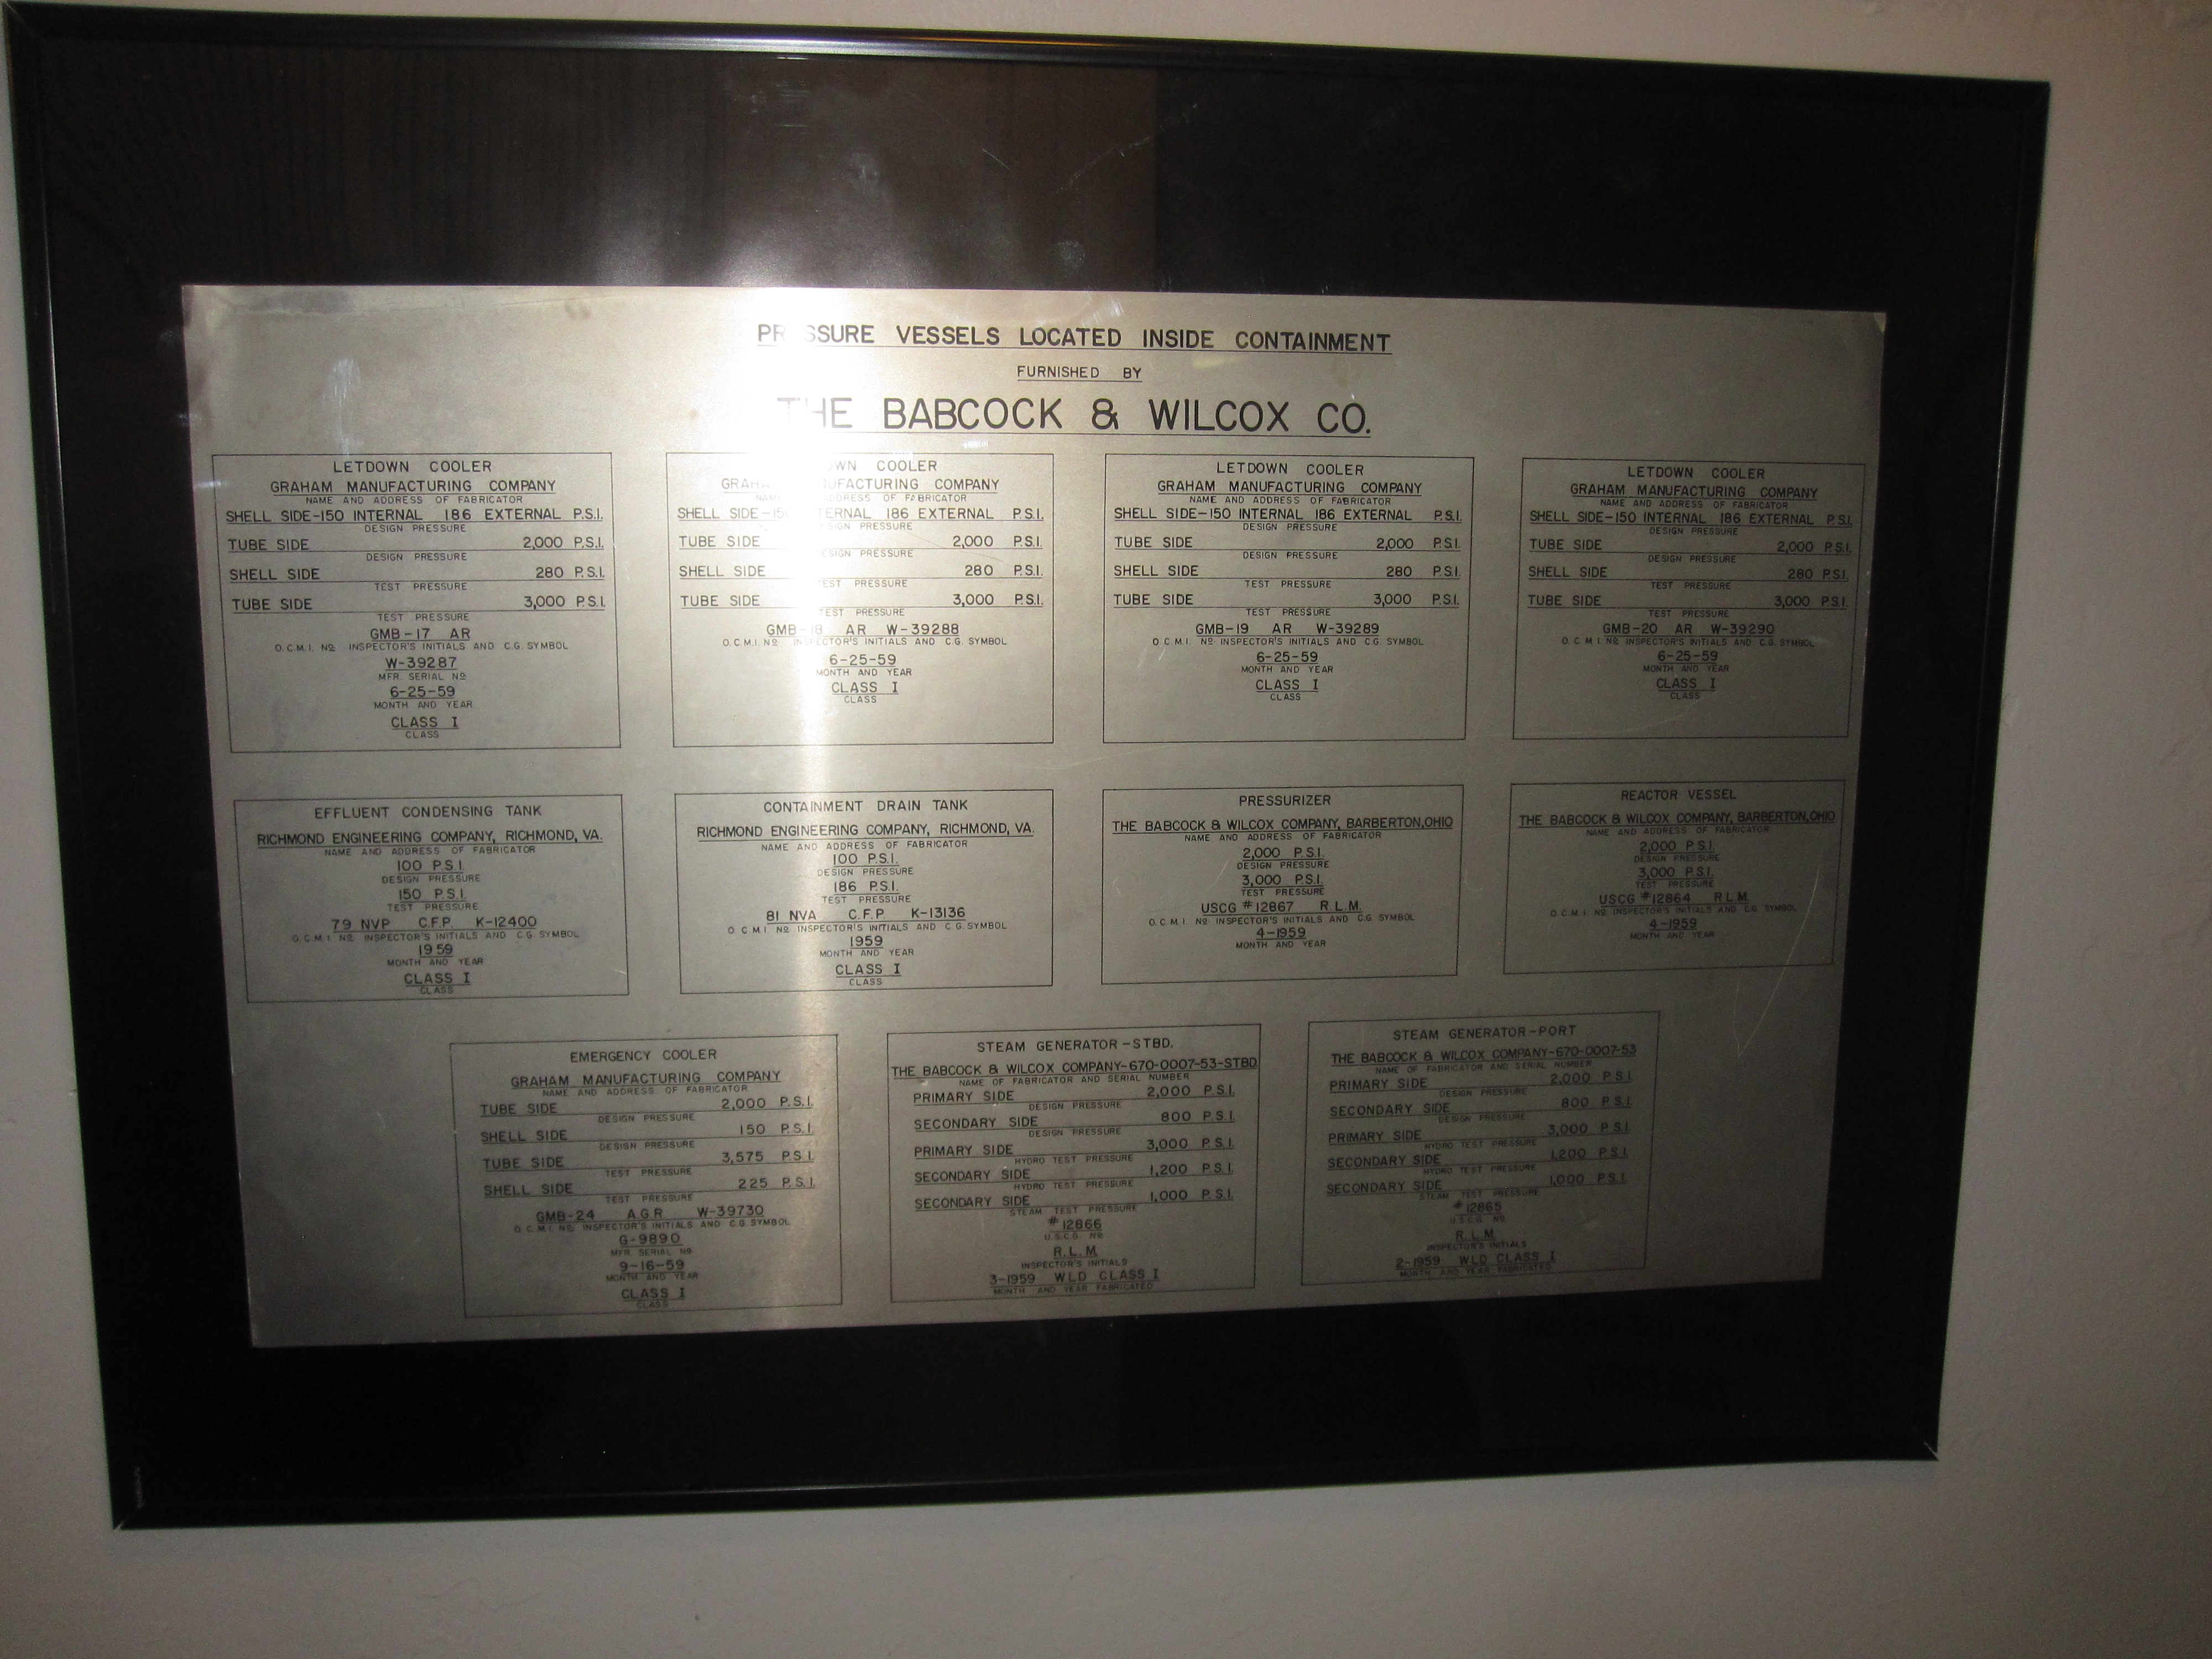 PR SSURE VESSELS LOCATED INSIDE CONTAINMENT
FURNISHED BY
THE BABCOCK & WILCOX CO.
LETDOWN COOLER
GRAHAM MANUFACTURING COMPANY
NAME AND ADDRESS OF FABRICATOR
SHELL SIDE-150 INTERNAL 186 EXTERNAL P.S.I.
DESIGN PRESSURE
TUBE SIDE 2,000 P.S.I.
DESIGN PRESSURE
SHELL SIDE 280 P.S.I.
TEST PRESSURE
TUBE SIDE 3,000 P.S.I.
TEST PRESSURE
GMB-17 AR
O.C.M.I. Nº INSPECTOR'S INITIALS AND C.G. SYMBOL
W-39287
MFR. SERIAL Nº
6-25-59
MONTH AND YEAR
CLASS I
CLASS
COOLER
MANUFACTURING COMPANY
ADDRESS OF FABRICATOR
SHELL SIDE-150 INTERNAL 186 EXTERNAL P.S.I.
DESIGN PRESSURE
TUBE SIDE 2,000 P.S.I.
DESIGN PRESSURE
SHELL SIDE 280 P.S.I.
TEST PRESSURE
TUBE SIDE 3,000 P.S.I.
TEST PRESSURE
GMB-18 AR W-39288
O.C.M.I. Nº INSPECTOR'S INITIALS AND C.G. SYMBOL
6-25-59
MONTH AND YEAR
CLASS I
CLASS
LETDOWN COOLER
GRAHAM MANUFACTURING COMPANY
NAME AND ADDRESS OF FABRICATOR
SHELL SIDE-150 INTERNAL 186 EXTERNAL P.S.I.
DESIGN PRESSURE
TUBE SIDE 2,000 P.S.I.
DESIGN PRESSURE
SHELL SIDE 280 P.S.I.
TEST PRESSURE
TUBE SIDE 3,000 P.S.I.
TEST PRESSURE
GMB-19 AR W-39289
O.C.M.I. Nº INSPECTOR'S INITIALS AND C.G. SYMBOL
6-25-59
MONTH AND YEAR
CLASS I
CLASS
LETDOWN COOLER
GRAHAM MANUFACTURING COMPANY
NAME AND ADDRESS OF FABRICATOR
SHELL SIDE-150 INTERNAL 186 EXTERNAL P.S.I.
DESIGN PRESSURE
TUBE SIDE 2,000 P.S.I.
DESIGN PRESSURE
SHELL SIDE 280 P.S.I.
TEST PRESSURE
TUBE SIDE 3,000 P.S.I.
TEST PRESSURE
GMB-20 AR W-39290
O.C.M.I. Nº INSPECTOR'S INITIALS AND C.G. SYMBOL
6-25-59
MONTH AND YEAR
CLASS I
CLASS
EFFLUENT CONDENSING TANK
RICHMOND ENGINEERING COMPANY, RICHMOND, VA.
NAME AND ADDRESS OF FABRICATOR
100 P.S.I.
DESIGN PRESSURE
150 P.S.I.
TEST PRESSURE
79 NVP C.F.P. K-12400
O.C.M.I. Nº INSPECTOR'S INITIALS AND C.G. SYMBOL
1959
MONTH AND YEAR
CLASS I
CLASS
CONTAINMENT DRAIN TANK
RICHMOND ENGINEERING COMPANY, RICHMOND, VA.
NAME AND ADDRESS OF FABRICATOR
100 P.S.I.
DESIGN PRESSURE
186 P.S.I.
TEST PRESSURE
81 NVA C.F.P. K-13136
O.C.M.I. Nº INSPECTOR'S INITIALS AND C.G. SYMBOL
1959
MONTH AND YEAR
CLASS I
CLASS
PRESSURIZER
THE BABCOCK & WILCOX COMPANY, BARBERTON,OHIO
NAME AND ADDRESS OF FABRICATOR
2,000 P.S.I.
DESIGN PRESSURE
3,000 P.S.I.
TEST PRESSURE
USCG #12867 R.L.M.
O.C.M.I. Nº INSPECTOR'S INITIALS AND C.G. SYMBOL
4-1959
MONTH AND YEAR
REACTOR VESSEL
THE BABCOCK & WILCOX COMPANY, BARBERTON,OHIO
NAME AND ADDRESS OF FABRICATOR
2,000 P.S.I.
DESIGN PRESSURE
3,000 P.S.I.
TEST PRESSURE
USCG #12864 R.L.M.
O.C.M.I. Nº INSPECTOR'S INITIALS AND C.G. SYMBOL
4-1959
MONTH AND YEAR
EMERGENCY COOLER
GRAHAM MANUFACTURING COMPANY
NAME AND ADDRESS OF FABRICATOR
TUBE SIDE 2,000 P.S.I.
DESIGN PRESSURE
SHELL SIDE 150 P.S.I.
DESIGN PRESSURE
TUBE SIDE 3,575 P.S.I.
TEST PRESSURE
SHELL SIDE 225 P.S.I.
TEST PRESSURE
GMB-24 A.G.R. W-39730
O.C.M.I. Nº INSPECTOR'S INITIALS AND C.G. SYMBOL
G-9890
MFR. SERIAL Nº
9-16-59
MONTH AND YEAR
CLASS I
CLASS
STEAM GENERATOR-STBD.
THE BABCOCK & WILCOX COMPANY-670-0007-53-STBD
NAME OF FABRICATOR AND SERIAL NUMBER
PRIMARY SIDE 2,000 P.S.I.
DESIGN PRESSURE
SECONDARY SIDE 800 P.S.I.
DESIGN PRESSURE
PRIMARY SIDE 3,000 P.S.I.
HYDRO TEST PRESSURE
SECONDARY SIDE 1,200 P.S.I.
HYDRO TEST PRESSURE
SECONDARY SIDE 1,000 P.S.I.
STEAM TEST PRESSURE
#12866
U.S.C.G. Nº
R.L.M.
INSPECTOR'S INITIALS
3-1959 WLD CLASS I
MONTH AND YEAR FABRICATED
STEAM GENERATOR-PORT
THE BABCOCK & WILCOX COMPANY-670-0007-53
NAME OF FABRICATOR AND SERIAL NUMBER
PRIMARY SIDE 2,000 P.S.I.
DESIGN PRESSURE
SECONDARY SIDE 800 P.S.I.
DESIGN PRESSURE
PRIMARY SIDE 3,000 P.S.I.
HYDRO TEST PRESSURE
SECONDARY SIDE 1,200 P.S.I.
HYDRO TEST PRESSURE
SECONDARY SIDE 1,000 P.S.I.
STEAM TEST PRESSURE
#12865
U.S.C.G. Nº
R.L.M.
INSPECTOR'S INITIALS
2-1959 WLD CLASS I
MONTH AND YEAR FABRICATED